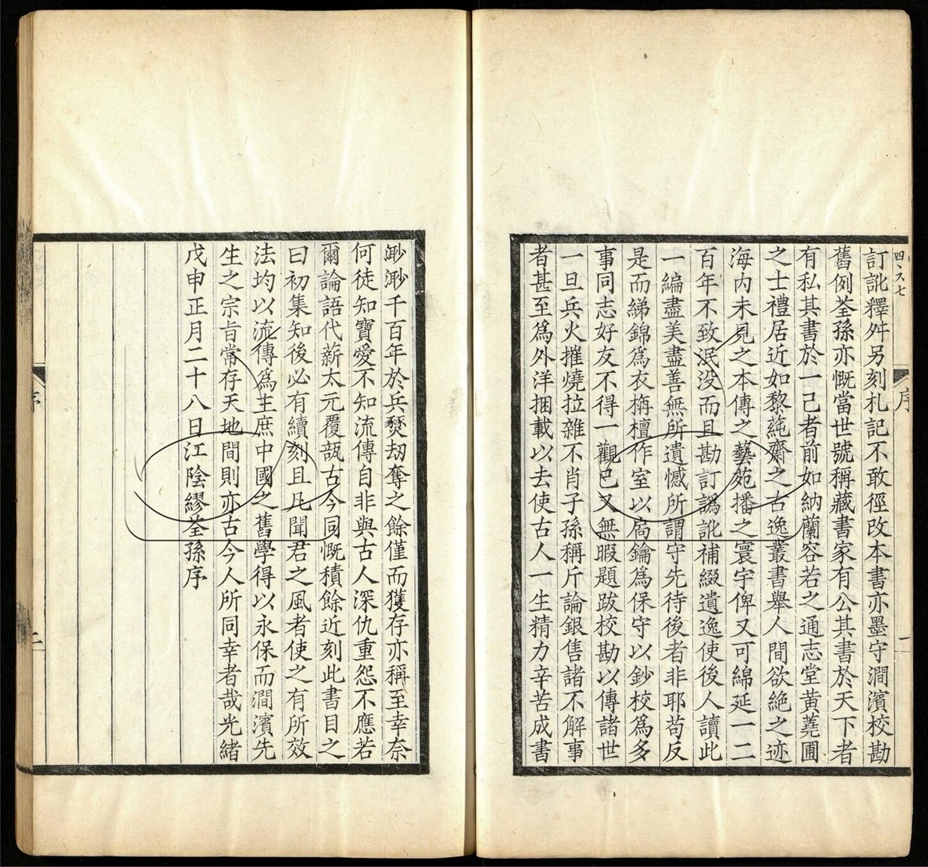 訂訛釋舛另刻札記不敢徑改本書亦墨守澗濱校勘
舊例荃孫亦慨當世號稱藏書家有公其書於天下者
有私其書於一己者前如納蘭容若之通志堂黃蕘圃
之士禮居近如黎蒓齋之古逸叢書舉人間欲絶之迹
海内未見之本傳之藝苑播之寰宇俾又可綿延一二
百年不致泯没而且勘訂譌訛補綴遺逸使後人讀此
一編盡美盡善無所遺憾所謂守先待後者非耶苟反
是而綈錦爲衣梅檀作室以扃鑰爲保守以鈔校爲多
事同志好友不得一觀已又無暇題跋校勘以傳諸世
一旦兵火摧燒拉雜不肖子孫稱斤論銀售諸不解事
者甚至爲外洋捆載以去使古人一生精力辛苦成書
序
一
渺渺千百年於兵燹劫奪之餘僅而獲存亦稱至幸奈
何徒知寶愛不知流傳自非與古人深仇重怨不應若
爾論語代薪太元覆瓿古今同慨積餘近刻此書目之
曰初集知後必有續刻且凡聞君之風者使之有所效
法均以流傳爲主庶中國之舊學得以永保而澗濱先
生之宗旨常存天地間則亦古今人所同幸者哉光緒
戊申正月二十八日江陰繆荃孫序
序
二